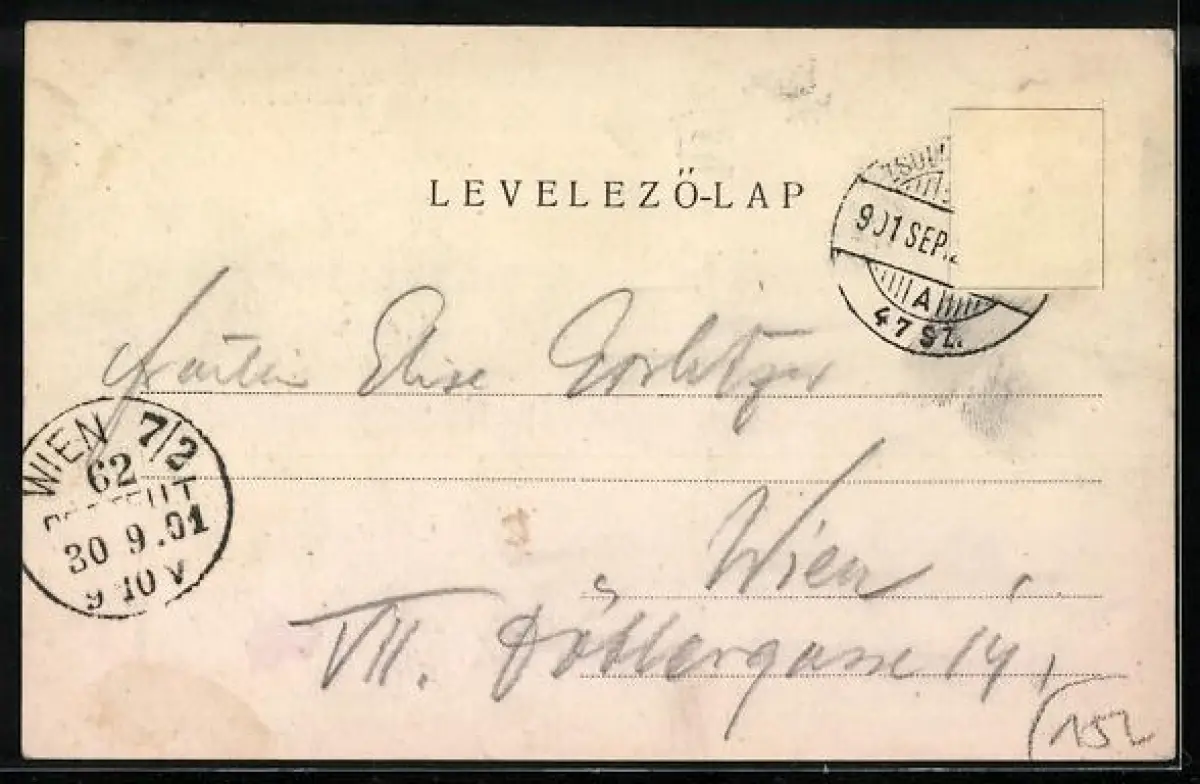 LEVELEZŐ-LAP
901 SEP.
A
47 SZ.
Fräulein Elise Gorlitzer
WIEN 7/2
62
BESTELLT
30 9.01
9 10 V
Wien
VII. Döblergasse 14,
152